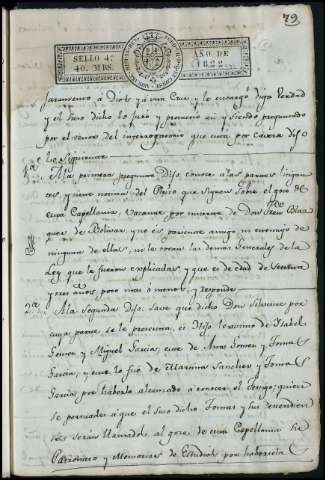 79
SELLO 4º
40. MRS.
AÑO DE
1822
Juramento á Dios y á una Cruz y le encargó diga Verdad
y el suso dicho lo juró y prometió así y siendo preguntado
por el tenor del interrogatorio que está por cavera dijo
lo siguiente
1ª A la primera pregunta Dijo conoce a las partes litigan
tes, y tiene noticia del Pleito que siguen sobre el goze de
esta Capellania, vacante por muerte de Don
quez de Bolivar, y no es pariente amigo ni enemigo de
ninguna de ellas, ni le tocan las demás Generales de la
Ley que le fueron explicadas, y que es de edad de setenta
y tres años poco mas ó menos, y responde
2ª A la Segunda Dijo: save que dicho Don Silvestre por
cuya parte se le presenta, es Hijo lexitimo de Isabel
Gomez y Miguel Garcia, esta de Ana Gomez y Tomas
Garcia, y este lo fue de Mariana Sanchez y Tomas
Garcia, por haberlo alcanzado a conocer el Testigo; quien
se persuade á que el suso dicho Tomas y sus descendien
tes serian llamados al goze de esta Capellania de
Patronato y Memorias de Estudios por haberlo